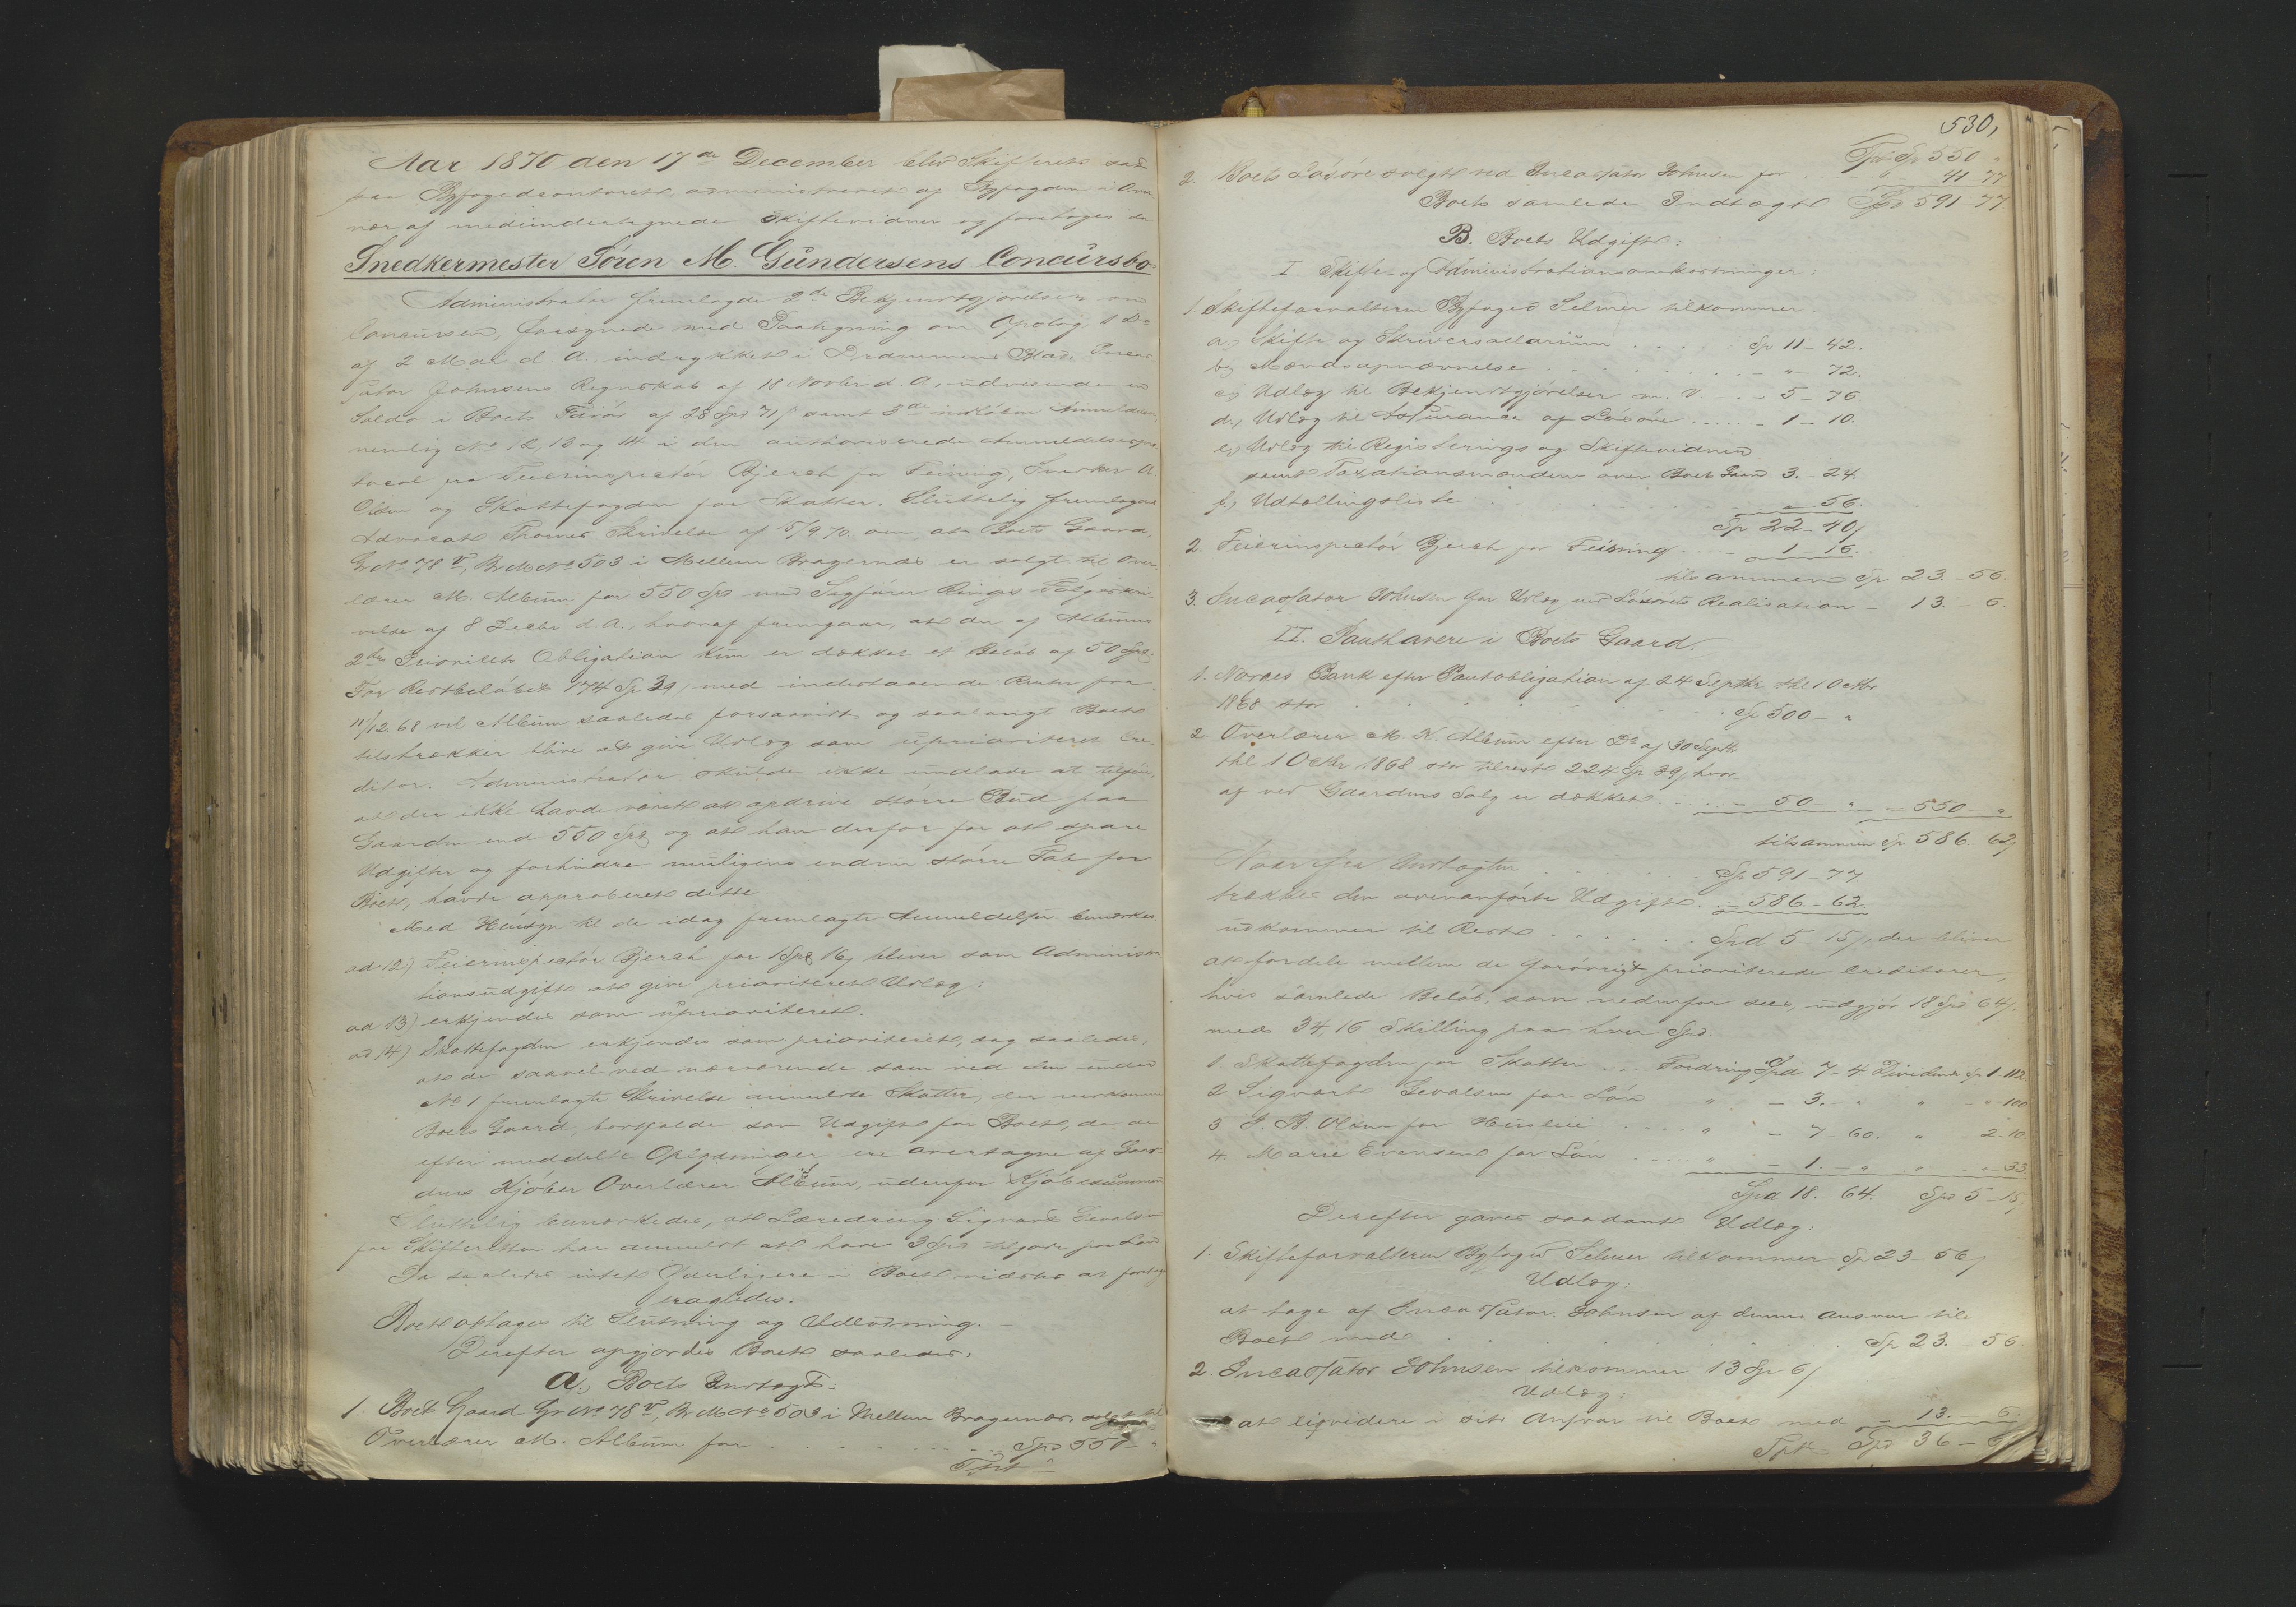 Aar 1870 den 17de December blev Skifteret sat
paa Byfogedcontoret administreret af Byfogden i Over-
vær af medundertegnede Skiftevidner og foretoges da
Snedkermester Sören M. Gundersens Concursbo
Administrator fremlagde 2de Bekjendtgjörelser om
Concursen, forsynede med Paategning om Oplæg 1 Do
af 2 Mai d. A. indrykket i Drammens Blad, Incas-
sator Johnsens Regnskab af 18 Novbr d. A., udvisende en
Saldo i Boets Favör af 28 Spd 71 s samt 3de indlöbne Anmeldelser
nemlig No 12, 13 og 14 i den authoriserede Anmeldelsespro-
tocol fra Feierinspectör Bjerch for Feining, Snedker A.
Olsen og Skattefogden for Skatter. Sluttelig fremlagdes
Advocat Thomes Skrivelse af 5/9 70 om at Boets Gaard,
Gr No 78 b, Br M No 503 i Mellem Bragernæs er solgt til Over-
lærer M. Album for 550 Spd med Sagförer Rings Fölgeskri-
velse af 8 Decbr d. A., hvoraf fremgaar, at der af Albums
2den Prioritets Obligation kun er dækket et Belöb af 50 Spd.
For Restbelöbet 174 Sp 39 s med indestaaende Renter fra
11/12 68 vil Album saaledes forsaavidt og saalangt Boet
tilstrækker blive at give Udlæg som uprioriteret Cre-
ditor. Administrator skulde ikke undlade at tilföie,
at der ikke havde været at opdrive större Bud paa
Gaarden end 550 Spd og at han derfor for at spare
Udgifter og forhindre muligens endnu större Tab for
Boet, havde approberet dette.
Med Hensyn til de idag fremlagte Anmeldelser bemærkes
ad 12) Feierinspectör Bjerch for 1 Spd 16 s bliver som Administra-
tionsudgift at give prioriteret Udlæg;
ad 13) erkjendes som uprioriteret.
ad 14) Skattefogden erkjendes som prioriteret, dog saaledes,
at de saavel ved nærværende som ved den under
No 1 fremlagte Skrivelse anmeldte Skatter, der vedkommer
Boets Gaard, bortfalde som Udgift for Boet, da de
efter meddelte Oplysninger ere overtagne af Gaar-
dens Kjöber Overlærer Album, udenfor Kjöbesummen
Sluttelig bemærkedes, at Læredreng Sigvart Gevalsen
for Skifteretten har anmeldt at have 3 Spd tilgode for Lön
Da saaledes intet Yderligere i Boet vidstes at foretage
eragtedes.
Boet optages til Slutning og Udlodning.
Derefter opgjordes Boet saaledes.
A, Boets Indtægt:
1. Boets Gaard Gr No 78 b, Br M No 503 i Mellem Bragernæs solgt til
Overlærer M. Album for . . . . . Spd 550 - "
Tpt -
530,
Tpt Sp 550 "
2. Boets Lösöre solgt ved Incassator Johnsen for . . 41 77
Boets samlede Indtægt Spd 591 77
B. Boets Udgift:
I. Skifte- og Administrationsomkostninger:
1. Skifteforvalteren Byfoged Selmer tilkommer.
a, Skifte og Skriversallarium . . . . . Sp 11 - 42.
b, Mændsopnævnelse . . . . . - " - 72.
c, Udlæg til Bekjendtgjörelser m. V. . . - 5 - 76
d, Udlæg til Assurance af Lösöre . . . . . - 1 - 10.
e, Udlæg til Registerings og Skiftevidner
samt Taxationsmændene over Boets Gaard 3. - 24.
f, Udtællingsliste . . . . . " 56.
Sp 22 - 40 s
2. Feierinspectör Bjerch for Feining . . . - 1 - 16.
tilsammen Sp 23. - 56.
3. Incassator Johnsen for Udlæg ved Lösörets Realisation - 13. - 6.
II. Panthavere i Boets Gaard.
1. Norges Bank efter Pantobligation af 24 Septbr thl 1 Octbr
1868 stor . . . . . Sp 500 - "
2. Overlærer M. K. Album efter Do af 30 Septbr
thl 1 Octbr 1868 stor tilrest 224 Sp 39 s, hvor-
af ved Gaardens Salg er dækket . . . - 50 - " - 550 - "
tilsammen Sp 586. 62 s
Naar fra Indtægten . . . . . Sp 591 - 77
trækkes den ovenanförte Udgift . . - 586. - 62.
udkommer til Rest . . . . . Spd 5 - 15 s, der bliver
at fordele mellem de forövrigt prioriterede Creditorer,
hvis samlede Belöb, som nedenfor sees, udgjör 18 Spd 64 s.
med 34,16 Skilling paa hver Spd.
1. Skattefogden for Skatter . . . Fordring Spd 7 - 4 Dividende Sp 1 - 112.
2 Sigvart Gevalsen for Lön " - 3. - " " - " - 100
3 J. B. Olsen for Husleie . . . . " - 7 - 60. " - 2 - 10.
4. Marie Evensen for Lön . . . . . " - 1. - " " - " - 33
Spd 18. - 64. Spd 5 - 15 s
Derefter gaves saadant Udlæg:
1. Skifteforvalteren Byfoged Selmer tilkommer Sp 23 - 56 s
Udlæg:
at tage af Incassator Johnsen af dennes Ansvar til
Boet med . . . . . Sp 23. - 56
2. Incassator Johnsen tilkommer 13 Sp 6 s
Udlæg:
at liqvidere i sit Ansvar til Boet med - 13. - 6.
Tpt Spd 36 - 62